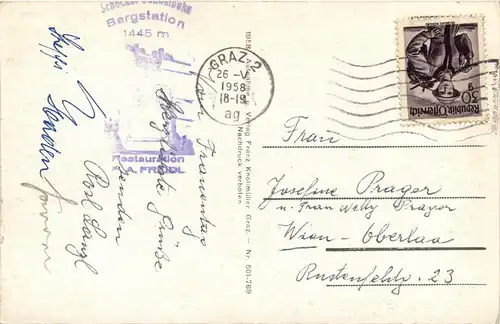 Schöckel-Seilbahn
Bergstation
1445 m
Restauration
A. FRIEDL
GRAZ 2
26 -V
1958
18-19
ag
Republik Österreich
30 g
1958 Aufnahme u. Verlag Franz Knollmüller Graz. - Nr. 501/769
Nachdruck verboten
vom Frauentag
Herzliche Grüße
senden
Resl Langl
Steffi
Frau
Josefine Prager
u. Frau Nelly Prager
Wien - Oberlaa
Rustenfeldg. 23